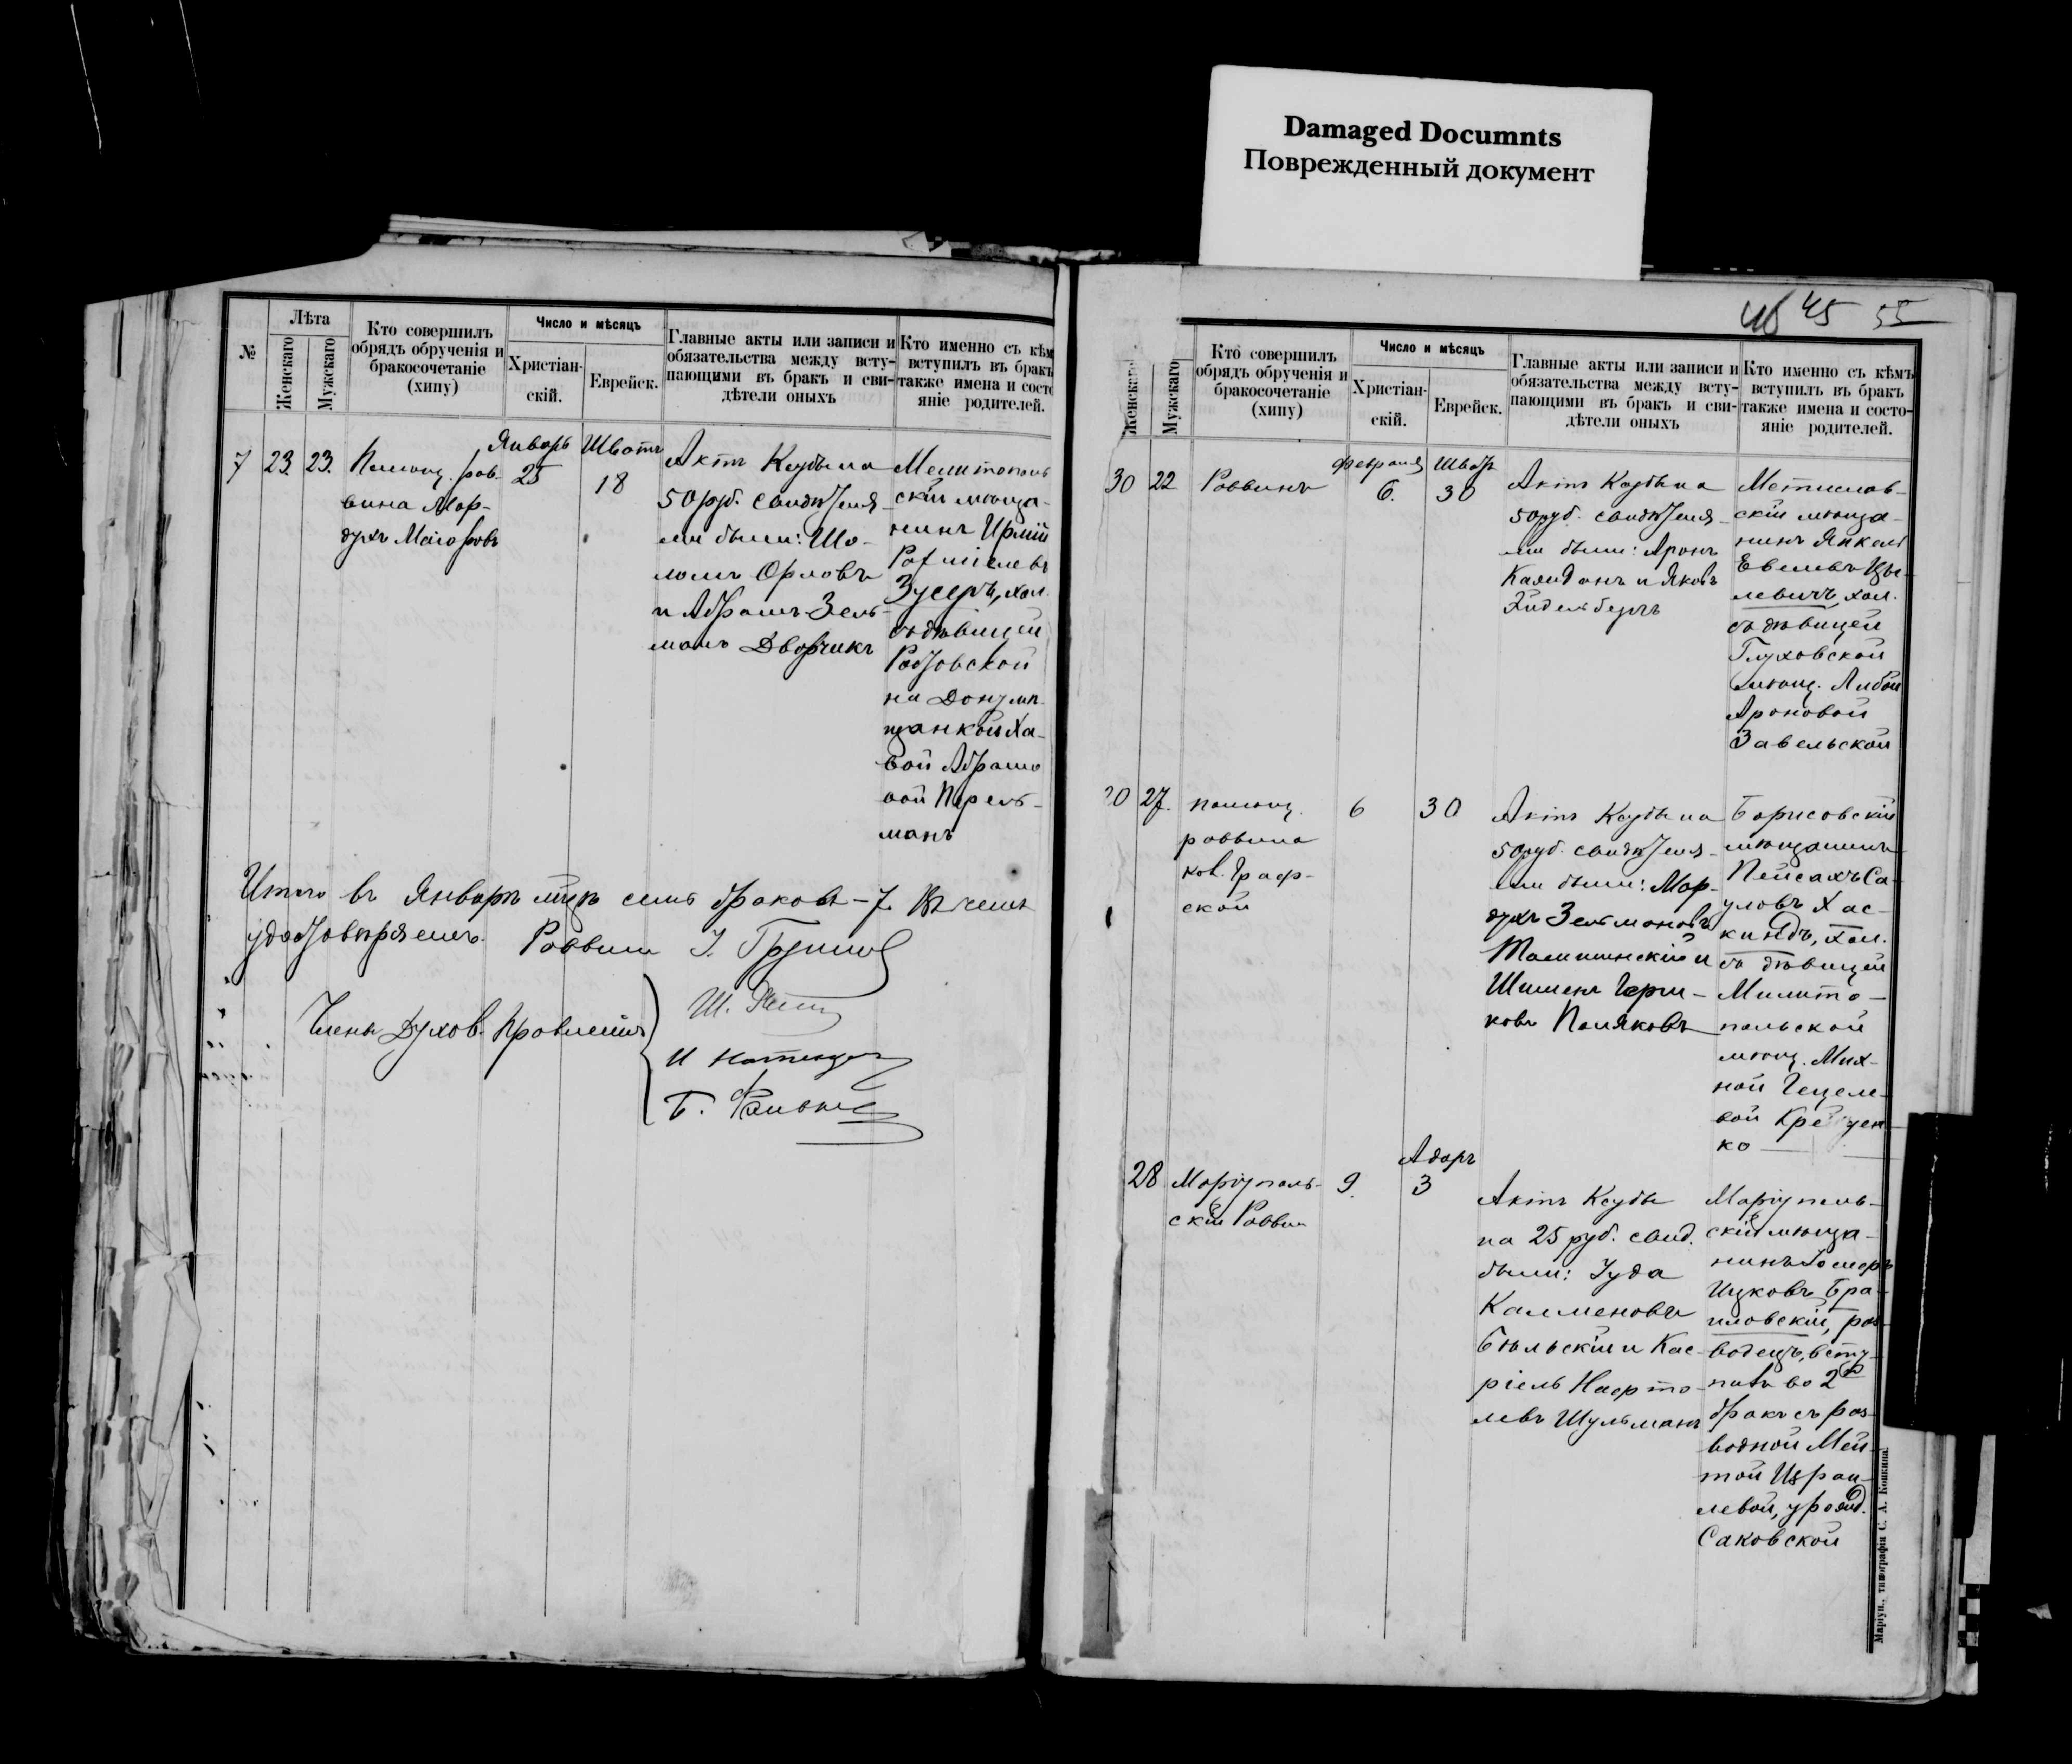 Damaged Documnts
Поврежденный документ
№
Лѣта
Женскаго
Мужскаго
Кто совершилъ
обрядъ обрученія и
бракосочетаніе
(хипу)
Число и мѣсяцъ
Христіан-
скій.
Еврейск.
Главные акты или записи и
обязательства между всту-
пающими въ бракъ и сви-
дѣтели оныхъ
Кто именно съ кѣм
вступилъ въ бракъ
также имена и состо
яніе родителей.
7
23.
23.
Помощ. рав-
вина Мор-
духъ
Январь
25
Шватъ
18
Актъ Ксубы на
50 руб. свидѣтеля-
ми были: Шо-
ломъ Орловъ
и Абрамъ Зель-
манъ Дворчикъ
Мелитополь
скій мѣща-
нинъ
Зусеръ, хол.
съ дѣвицей
Ростовской
на Дону мѣ
щанкой Ха-
вой Абрамо
вой Перель-
манъ
Итого въ Январѣ мцѣ семь браковъ - 7. Въ чемъ
удостовѣряемъ. Раввинъ
Члены Духов. Правленія
45 55
Женскаго
Мужскаго
Кто совершилъ
обрядъ обрученія и
бракосочетаніе
(хипу)
Число и мѣсяцъ
Христіан-
скій.
Еврейск.
Главные акты или записи и
обязательства между всту-
пающими въ бракъ и сви-
дѣтели оныхъ
Кто именно съ кѣмъ
вступилъ въ бракъ
также имена и состо-
яніе родителей.
30
22
Раввинъ
Февраля
6.
Шватъ
30
Актъ Ксубы на
50 руб. свидѣтеля-
ми были: Аронъ
Каледонъ и Яковъ
Эйдельбергъ
Мстислав-
скій мѣща-
нинъ Янкель
левичъ, хол.
съ дѣвицей
Глуховской
мѣщ. Либой
Ароновой
Завельской
20
27.
помощ.
раввина
кол. Граф-
ской
6
30
Актъ Ксубы на
50 руб. свидѣтеля-
ми были: Мор-
духъ Зельмановъ
и
ковъ Поляковъ
Борисовскій
мѣщанинъ
Пейсахъ Са-
уловъ Хас-
киндъ, хол.
съ дѣвицей
Мелито-
польской
мѣщ. Мих-
ной Гецеле-
вой
ко
28
Маріуполь-
скій Раввинъ
9.
Адаръ
3
Актъ Ксубы
на 25 руб. свид.
были: Іуда
Калменовъ
Бѣльскій и Кас-
ріель Нафто-
левъ Шульманъ
Маріуполь-
скій мѣща-
нинъ
Ицковъ Бра-
иловскій, раз-
водецъ, всту-
палъ во 2й
бракъ съ раз-
водной Мей-
той Израи-
левой, урожд.
Саковской
Маріуп., типографія С. А. Копкина.